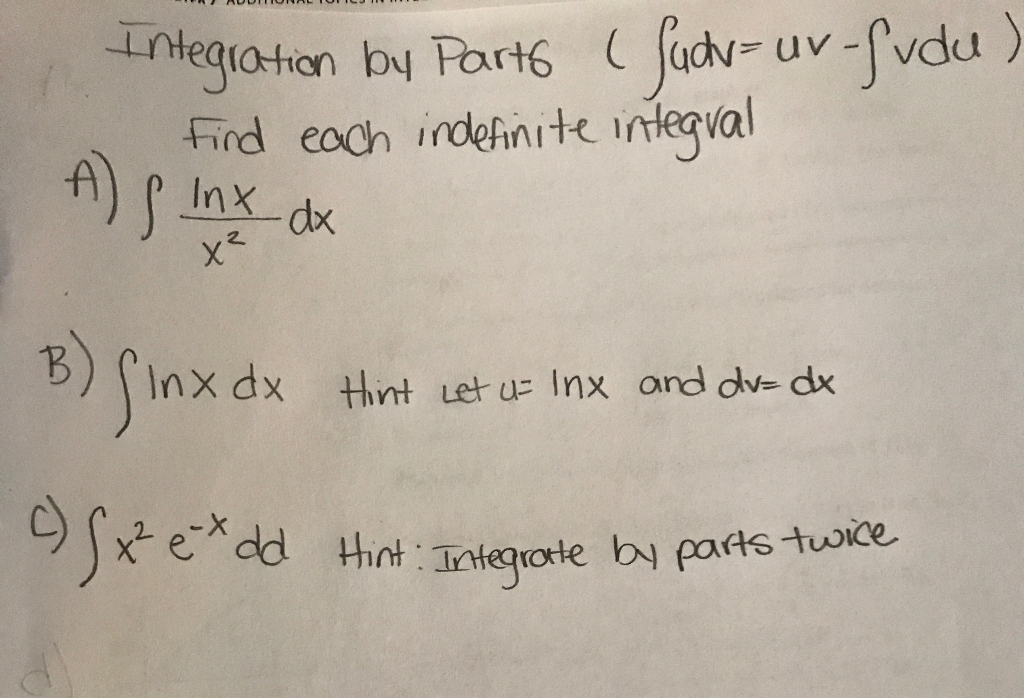 Integration by Parts ( ∫udv = uv - ∫vdu )
Find each indefinite integral
A) ∫ lnx/x² dx
B) ∫lnx dx Hint Let u= lnx and dv= dx
C) ∫x² e^-x dd Hint: Integrate by parts twice
d)